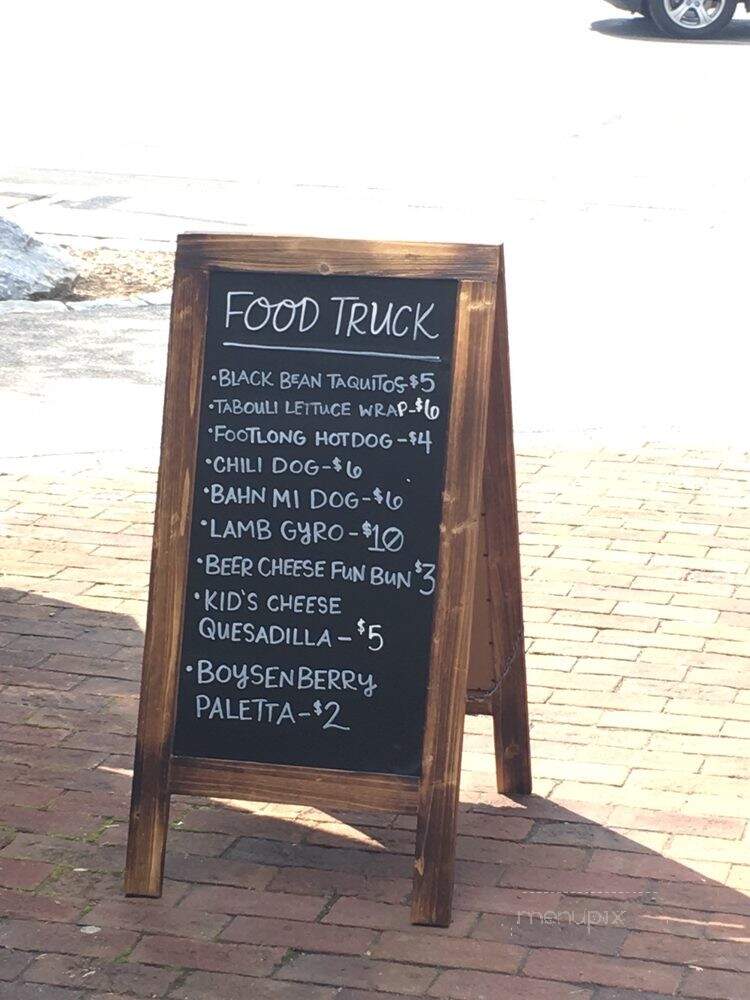 FOOD TRUCK
•BLACK BEAN TAQUITOS-$5
•TABOULI LETTUCE WRAP-$6
•FOOTLONG HOTDOG-$4
•CHILI DOG-$6
•BAHN MI DOG-$6
•LAMB GYRO-$10
•BEER CHEESE FUN BUN $3
•KID'S CHEESE
QUESADILLA-$5
•BOYSENBERRY
PALETTA-$2
menupix